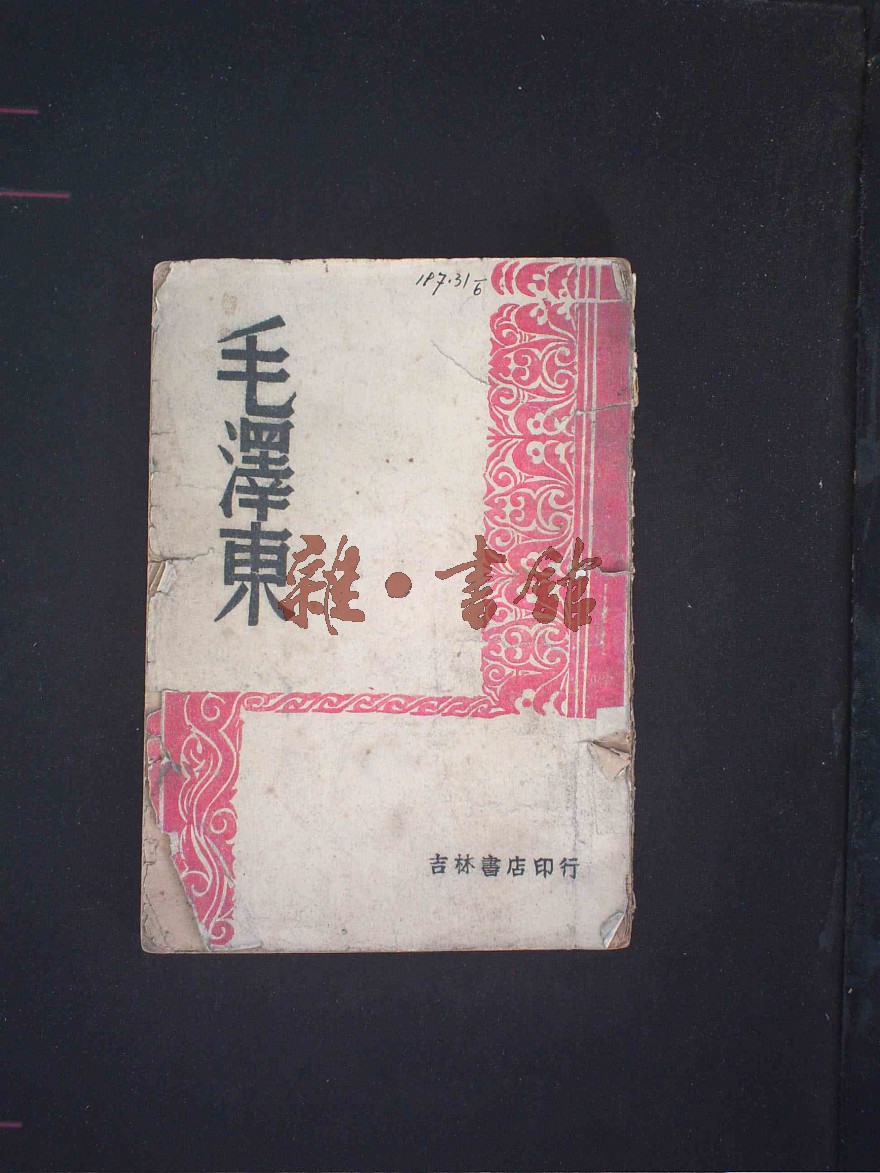 187·31/6
毛澤東
雜·書館
吉林書店印行